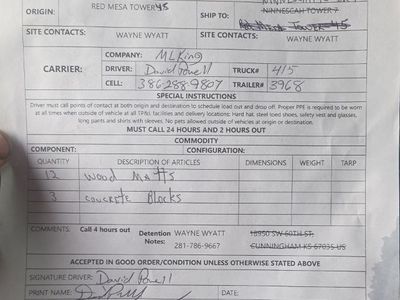 NINNESCAH TOWER 7
ORIGIN: RED MESA TOWER 45 SHIP TO: RED MESA TOWER 45
SITE CONTACTS: WAYNE WYATT SITE CONTACTS: WAYNE WYATT
COMPANY: MLKing
CARRIER: DRIVER: David Powell TRUCK# 415
CELL: 386-288-9807 TRAILER# 3968
SPECIAL INSTRUCTIONS
Driver must call points of contact at both origin and destination to schedule load out and drop off. Proper PPE is required to be worn
at all times when outside of vehicle at all facilities and delivery locations: Hard hat, steel toed shoes, safety vest and glasses,
long pants and shirts with sleeves. No pets allowed outside of vehicles at origin or destination.
MUST CALL 24 HOURS AND 2 HOURS OUT
COMMODITY
COMPONENT: CONFIGURATION:
QUANTITY DESCRIPTION OF ARTICLES DIMENSIONS WEIGHT TARP
12 Wood Matts
3 Concrete Blocks
COMMENTS: Call 4 hours out Detention WAYNE WYATT 18950 SW 60TH ST.
Notes: 281-786-9667 CUNNINGHAM KS 67035 US
ACCEPTED IN GOOD ORDER/CONDITION UNLESS OTHERWISE STATED ABOVE
SIGNATURE DRIVER: David Powell
PRINT NAME: DATE: